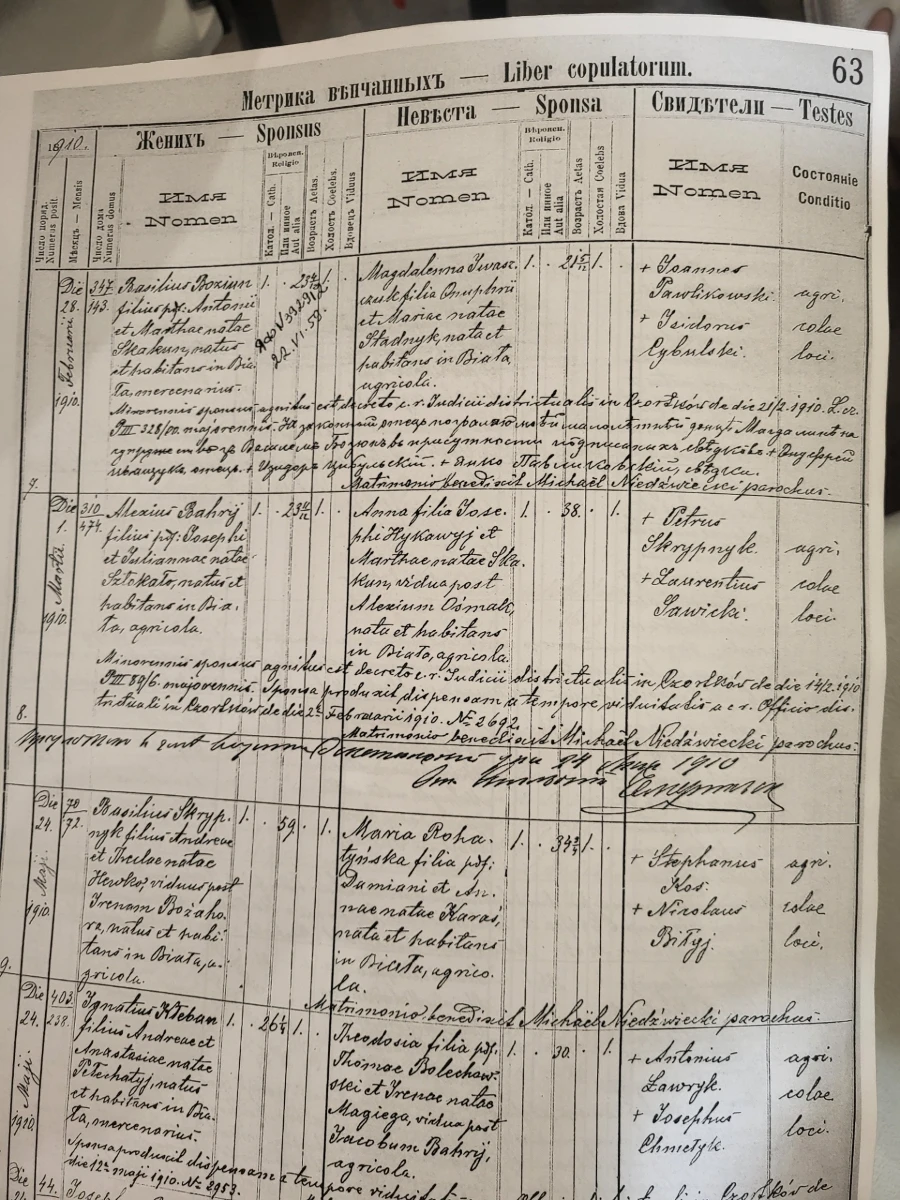 63
Метрика вѣнчанныхъ — Liber copulatorum.
1910.
Женихъ — Sponsus
Невѣста — Sponsa
Свидѣтели — Testes
Число поряд. Numerus posit.
Мѣсяцъ — Mensis
Число дома Numerus domus
Имя
Nomen
Вѣроисп. Religio
Катол. — Cath.
Или иное Aut alia
Возрастъ Aetas.
Холостъ Coelebs.
Вдовецъ Viduus
Имя
Nomen
Вѣроисп. Religio
Катол. — Cath.
Или иное Aut alia
Возрастъ Aetas
Холостая Coelebs
Вдова Vidua
Имя
Nomen
Состояніе
Conditio
Die 28. Februarii 1910.
347
143.
Basilius Boziun
filius pdf: Antonii
et Marthae natae
Skakun, natus
et habitans in Bia-
ła, mercenarius.
1. 1.
22.VI.59.
Magdalenna Iwasz-
czuk filia Onuphrii
et Mariae natae
Stadnyk, nata et
habitans in Biała,
agricola.
1. 21 5/12 1.
+ Joannes
Pawlikowski.
+ Isidorus
Cybulski.
agri,
colae
loci.
Minorennis sponsus agnitus est decreto c. r. Iudicii districtualis in Czortków de die 21/2. 1910. L. cz.
PIII 328/00. majorennis.
Matrimonio benedixit Michaël Niedźwiecki parochus.
7.
Die 1. Martii 1910.
310
474.
Alexius Bahrij
filius pdf: Josephi
et Iuliannae natae
Sztokało, natus et
habitans in Bia-
ła, agricola.
1. 1.
Anna filia Jose-
phi Hykawyj et
Marthae natae Ska-
kun, vidua post
Alexium Ośmak,
nata et habitans
in Biała, agricola.
1. 38. 1.
+ Petrus
Skrypnyk.
+ Laurentius
Sawicki.
agri,
colae
loci.
Minorennis sponsus agnitus est decreto c. r. Iudicii districtualis in Czortków de die 14/2. 1910
PIII 89/6. majorennis. Sponsa produxit dispensam a tempore viduitatis a c. r. Officio dis-
trictuali in Czortków de die Februarii 1910. № 2692.
Matrimonio benedixit Michaël Niedźwiecki parochus.
8.
24 1910
Die 24. Maji 1910.
70
72.
Basilius Skryp-
nyk filius Andreae
et Theclae natae
Hewko, viduus post
Irenam Bożaho-
ra, natus et habi-
tans in Biała, a-
gricola.
1. 59. 1.
Maria Roha-
tyńska filia pdf:
Damiani et An-
nae natae Karaś,
nata et habitans
in Biała, agrico-
la.
1. 34 1.
+ Stephanus
Kos.
+ Nicolaus
Biłyj.
agri,
colae
loci.
Matrimonio benedixit Michaël Niedźwiecki parochus.
9.
Die 24. Maji 1910.
403.
238.
Ignatius Kłeban
filius Andreae et
Anastasiae natae
Petechatyj, natus
et habitans in Bia-
ła, mercenarius.
1. 26 1.
Theodosia filia pdf.
Thomae Bolechow-
ski et Irenae natae
Magiega, vidua post
Jacobum Bahrij,
agricola.
1. 30. 1.
+ Antonius
Ławryk.
+ Josephus
Chmetyk.
agri,
colae
loci.
Sponsa produxit dispensam a tempore viduitatis
die 12 maji 1910. № 2953.
Czortków de
Die
44.